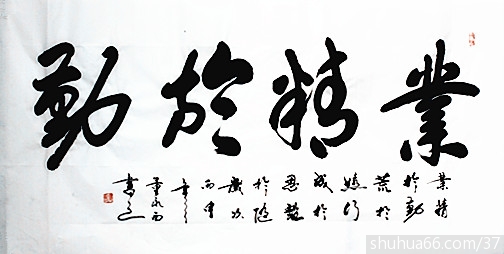 業精於勤
業精
於勤
荒於
嬉行
成於
思毀
於隨
歲次
書
shuhua66.com/37